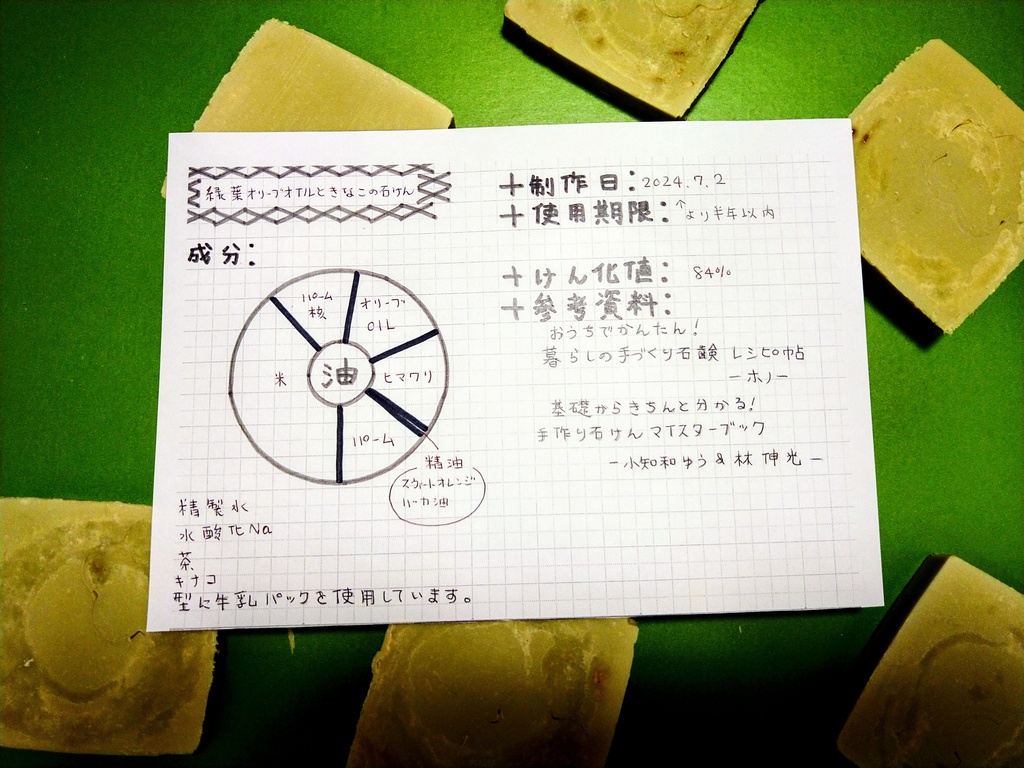 緑葉オリーブオイルときなこの石けん
成分:
油
パーム核
オリーブOIL
ヒマワリ
パーム
米
精油
スウィートオレンジ
ハッカ油
精製水
水酸化Na
茶
キナコ
型に牛乳パックを使用しています。
+制作日: 2024.7.2
+使用期限: ↑より半年以内
+けん化値: 84%
+参考資料:
おうちでかんたん!
暮らしの手づくり石鹸 レシピ帖
ーホノー
基礎からきちんと分かる!
手作り石けんマイスターブック
ー小知和ゆう&林 伸光ー